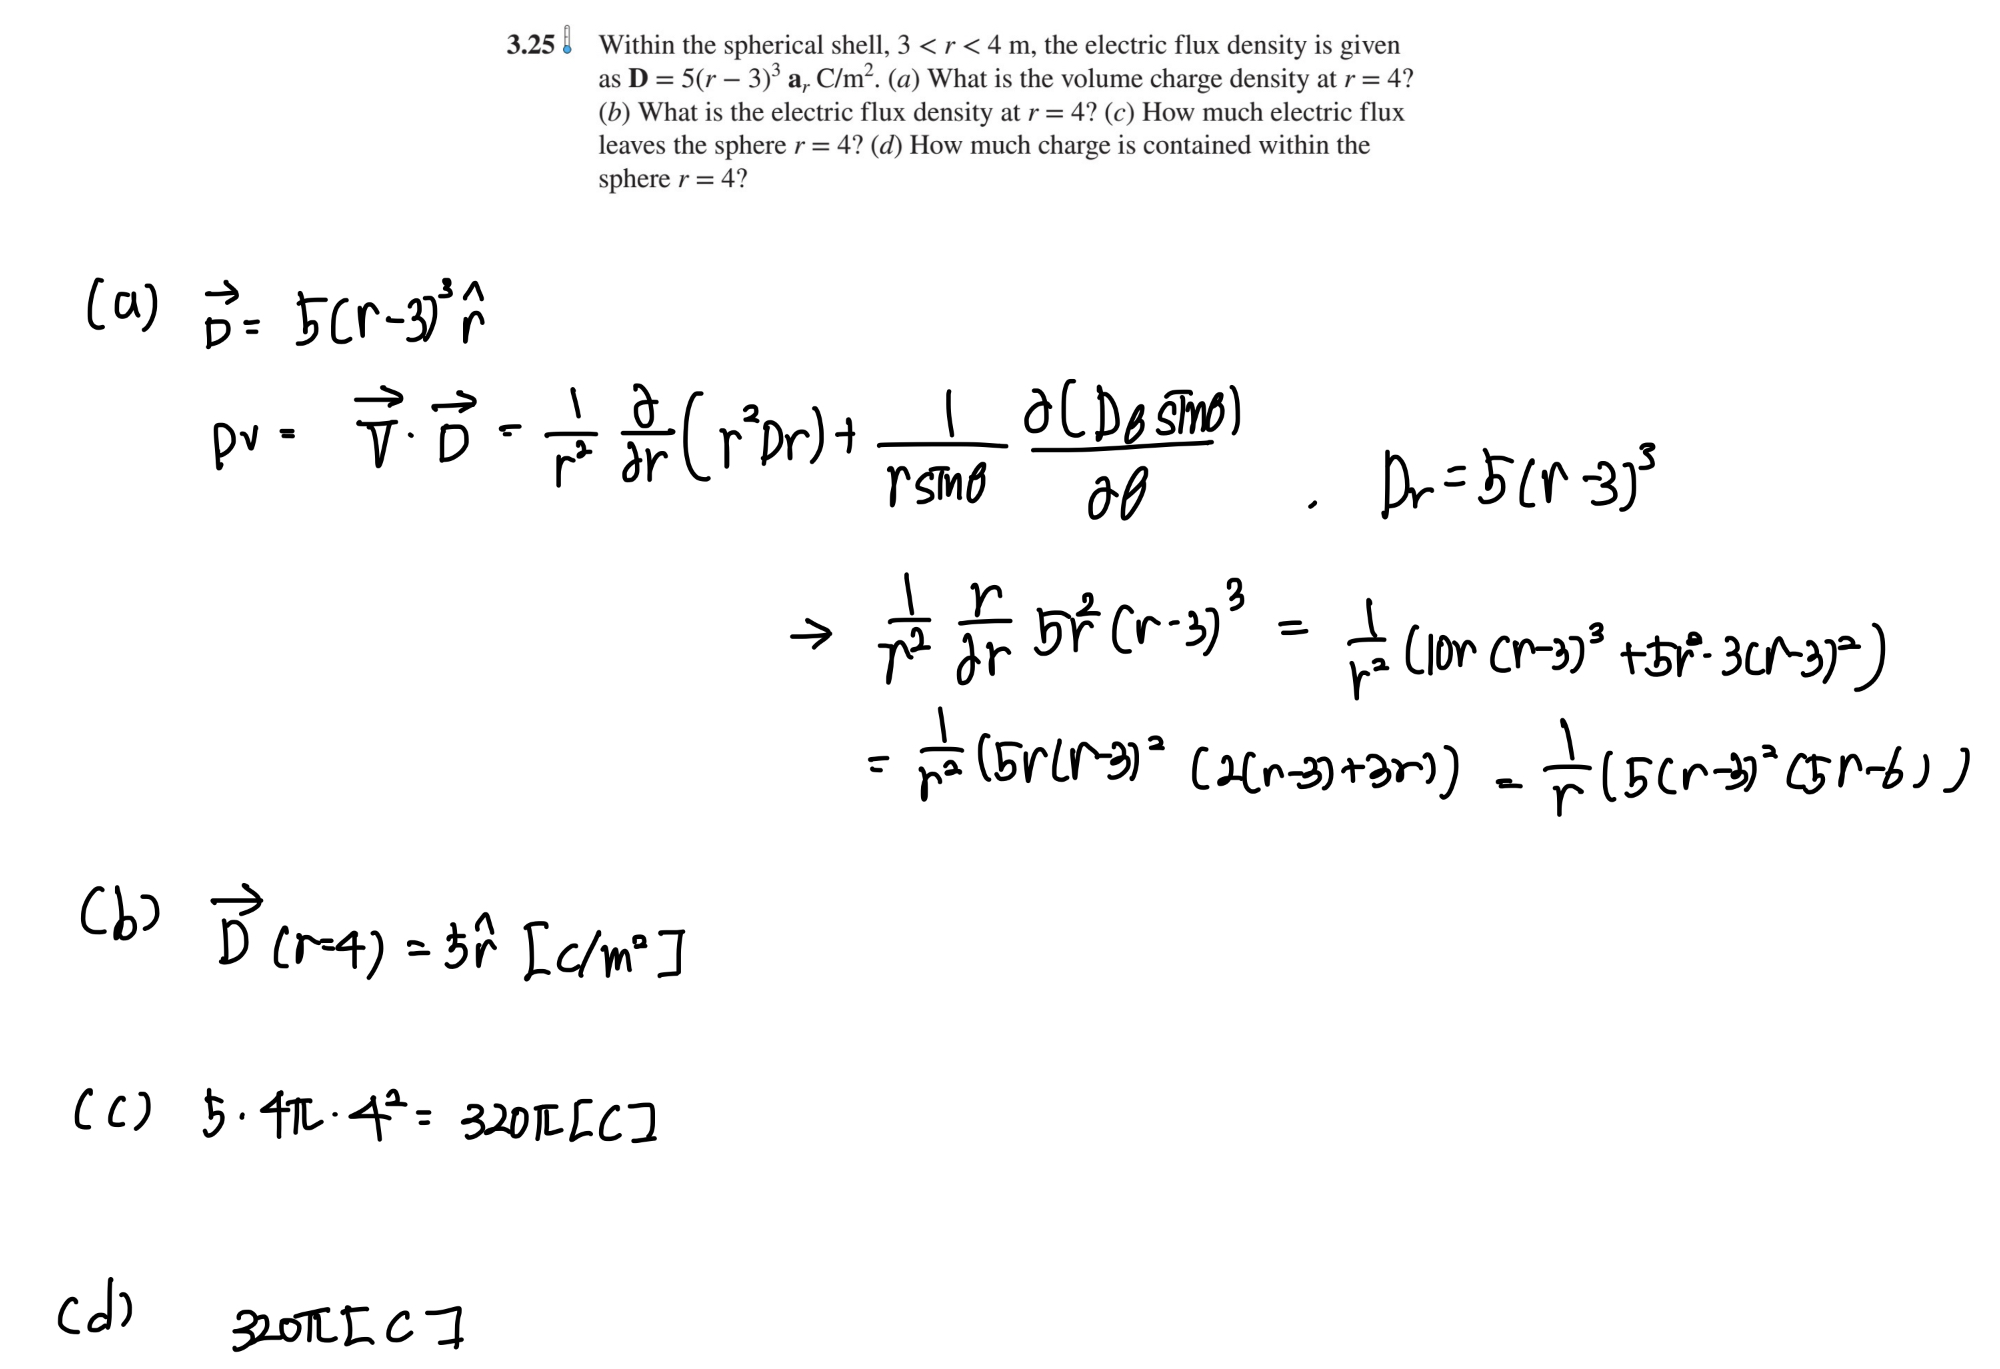 3.25 Within the spherical shell, 3 < r < 4 m, the electric flux density is given
as D = 5(r − 3)³ aᵣ C/m². (a) What is the volume charge density at r = 4?
(b) What is the electric flux density at r = 4? (c) How much electric flux
leaves the sphere r = 4? (d) How much charge is contained within the
sphere r = 4?
(a) D⃗ = 5(r-3)³ r̂
ρv = ∇⃗ · D⃗ = 1/r² ∂/∂r (r²Dr) + 1/(r sinθ) ∂(Dθ sinθ)/∂θ . Dr = 5(r-3)³
→ 1/r² r/∂r 5r²(r-3)³ = 1/r² (10r(r-3)³ + 5r²·3(r-3)²)
= 1/r² (5r(r-3)² (2(r-3)+3r)) = 1/r (5(r-3)² (5r-6))
(b) D⃗ (r=4) = 5r̂ [C/m²]
(c) 5·4π·4² = 320π[C]
(d) 320π[C]